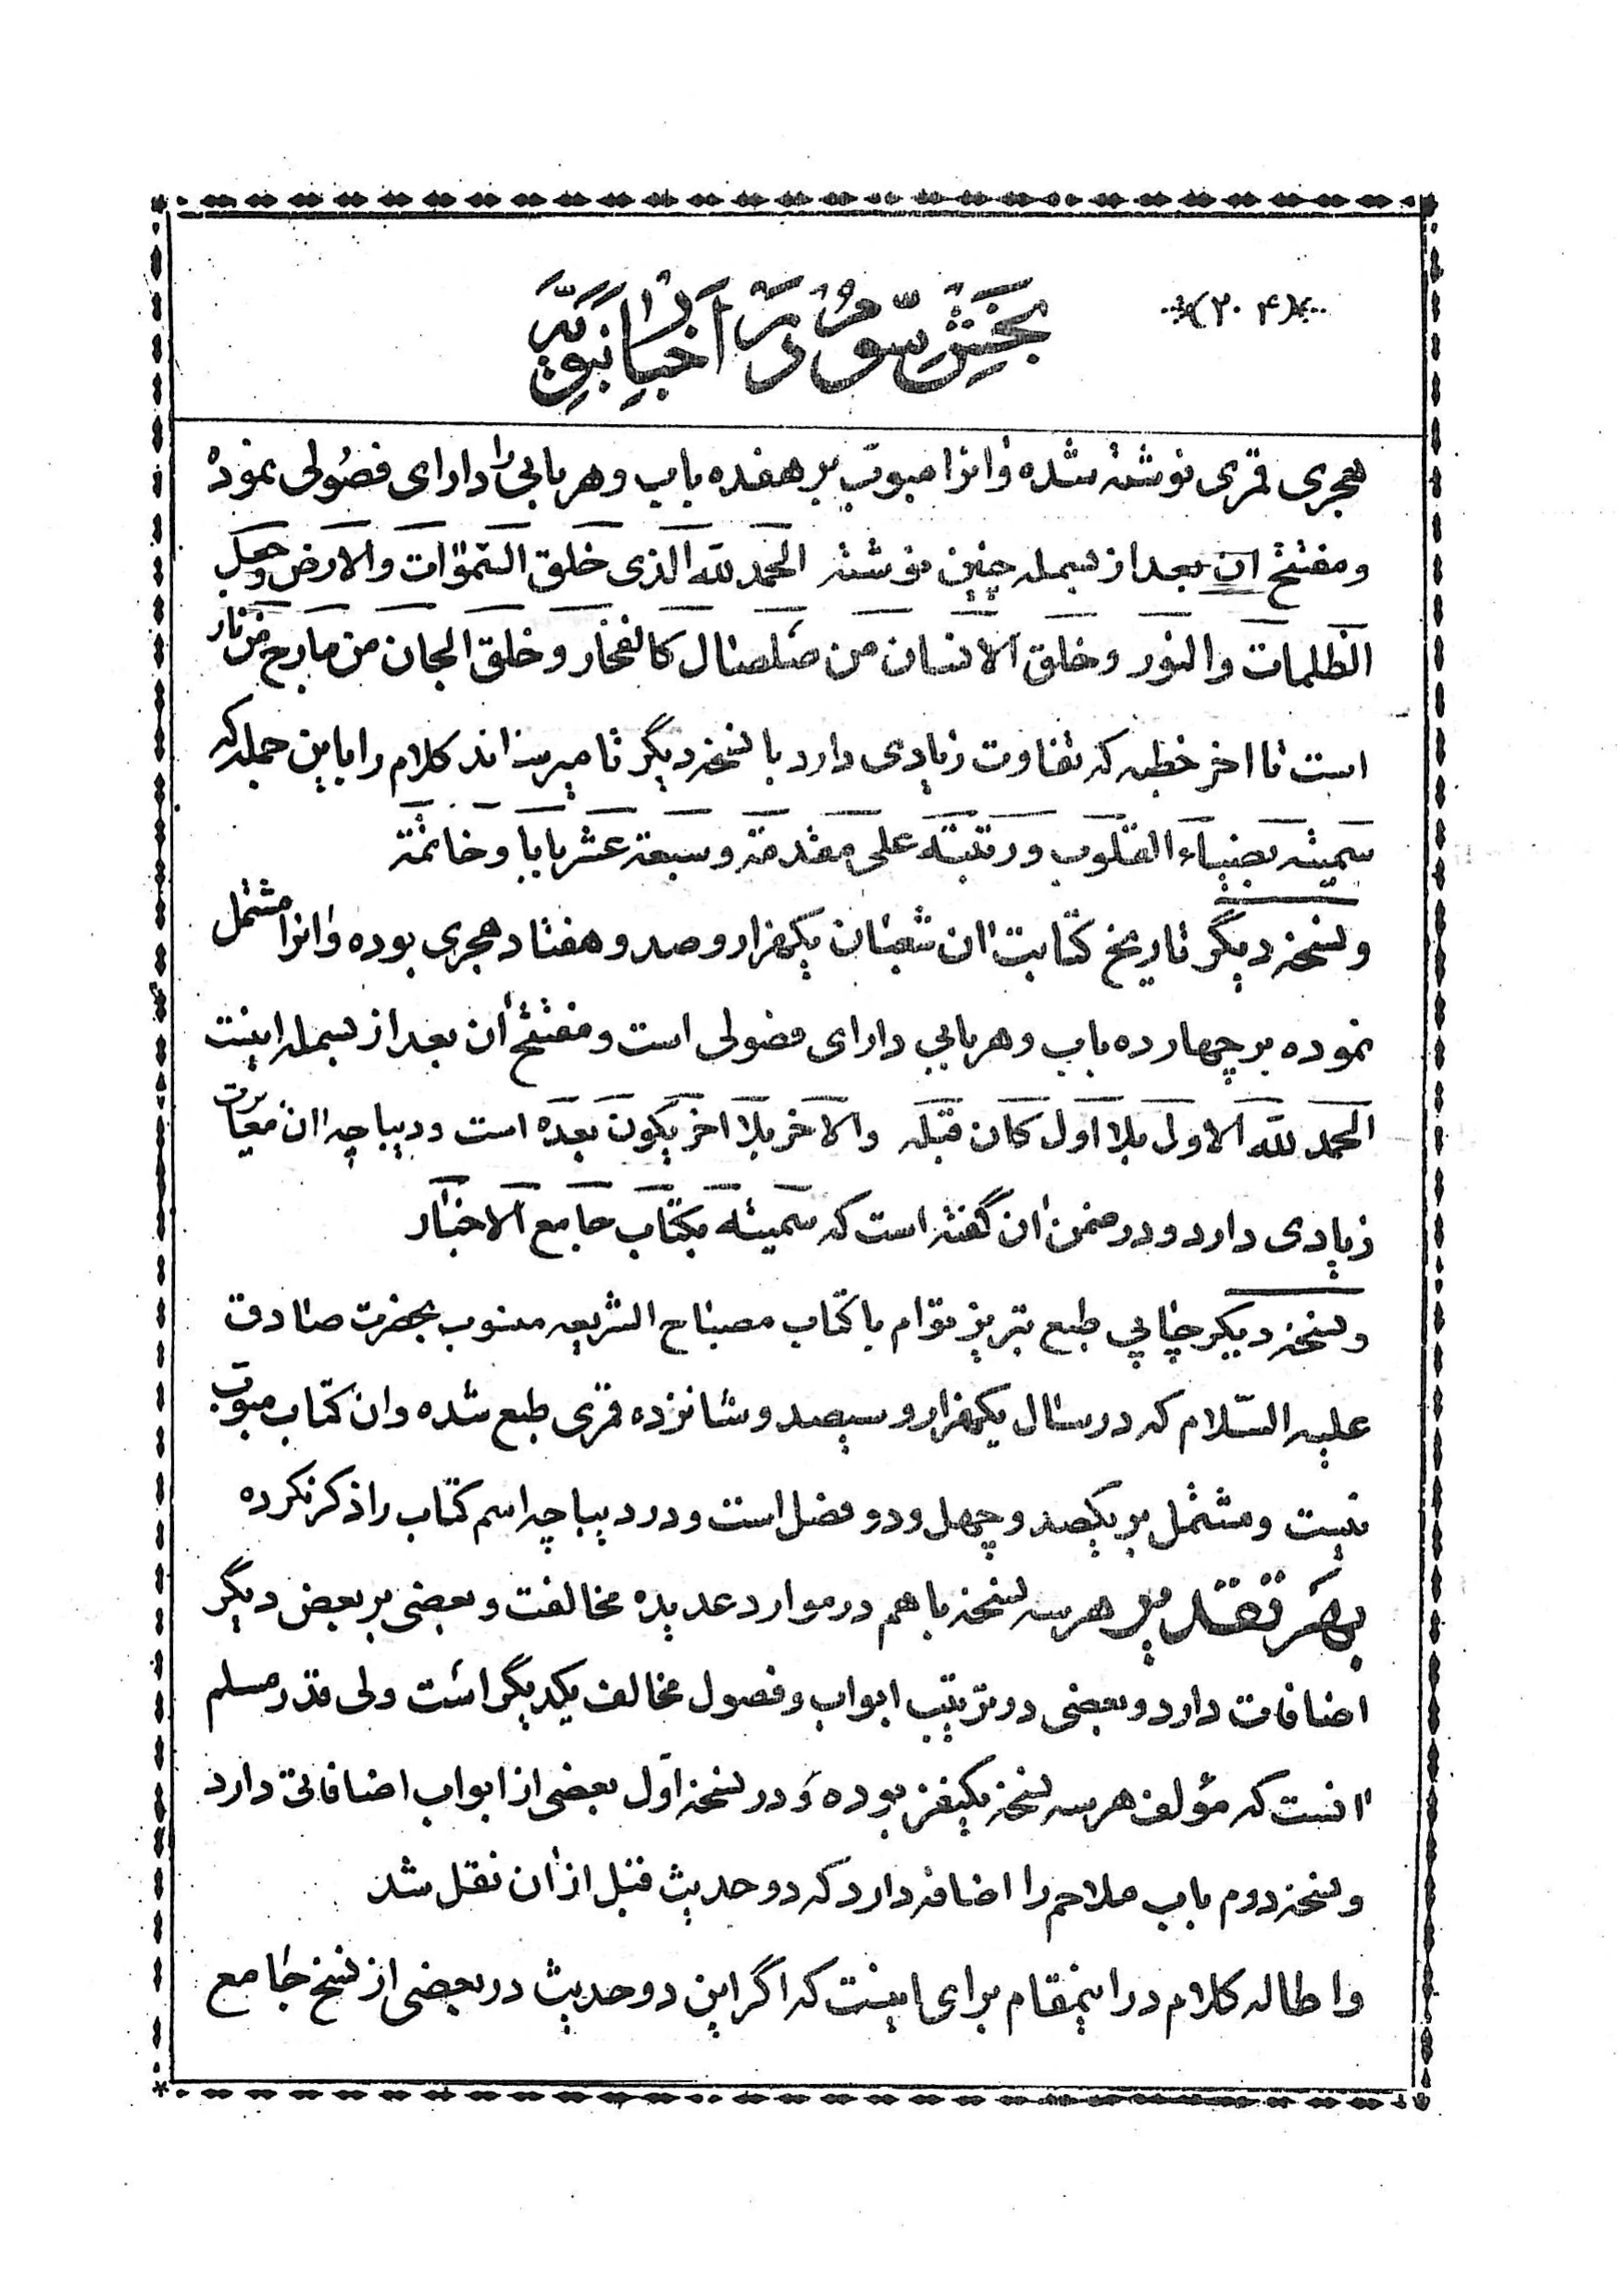 (۲۰۴)
بخش سوم در اخبار نبویه
هجری قمری نوشته شده وانرا مبوب بر هفده باب و هر بابی را دارای فصولی نموده
و مفتتح ان بعد از بسمله چنین نوشته الحمد لله الذی خلق السموات والارض وجعل
الظلمات والنور وخلق الانسان من صلصال کالفخار وخلق الجان من مارج من نار
است تا اخر خطبه که تفاوت زیادی دارد با نسخه دیگر تا میرساند کلام را باین جمله که
سمیته بضیاء القلوب ورتبته علی مقدمة وسبعة عشر بابا وخاتمة
ونسخه دیگر تاریخ کتابت ان شعبان یکهزار و صد و هفتاد هجری بوده وانرا مشتمل
نموده بر چهارده باب و هر بابی دارای فصولی است و مفتتح ان بعد از بسمله اینست
الحمد لله الاول بلا اول کان قبله والاخر بلا اخر یکون بعده است و دیباچه ان مغایرت
زیادی دارد و در ضمن ان گفته است که سمیته بکتاب جامع الاخبار
ونسخه دیگر چاپی طبع تبریز توام با کتاب مصباح الشریعه منسوب بحضرت صادق
علیه السلام که در سال یکهزار و سیصد و شانزده قمری طبع شده وان کتاب مبوب
نیست و مشتمل بر یکصد و چهل و دو فصل است و در دیباچه اسم کتاب را ذکر نکرده
بهر تقدیر هر سه نسخه با هم در موارد عدیده مخالفت و بعضی بر بعض دیگر
اضافات دارد و بعضی در ترتیب ابواب و فصول مخالف یکدیگر است ولی قدر مسلم
انست که مؤلف هر سه نسخه یکنفر بوده و در نسخه اول بعضی از ابواب اضافاتی دارد
ونسخه دوم باب ملاحم را اضافه دارد که دو حدیث قبل از ان نقل شد
واطاله کلام در اینمقام برای اینست که اگر این دو حدیث در بعضی از نسخ جامع